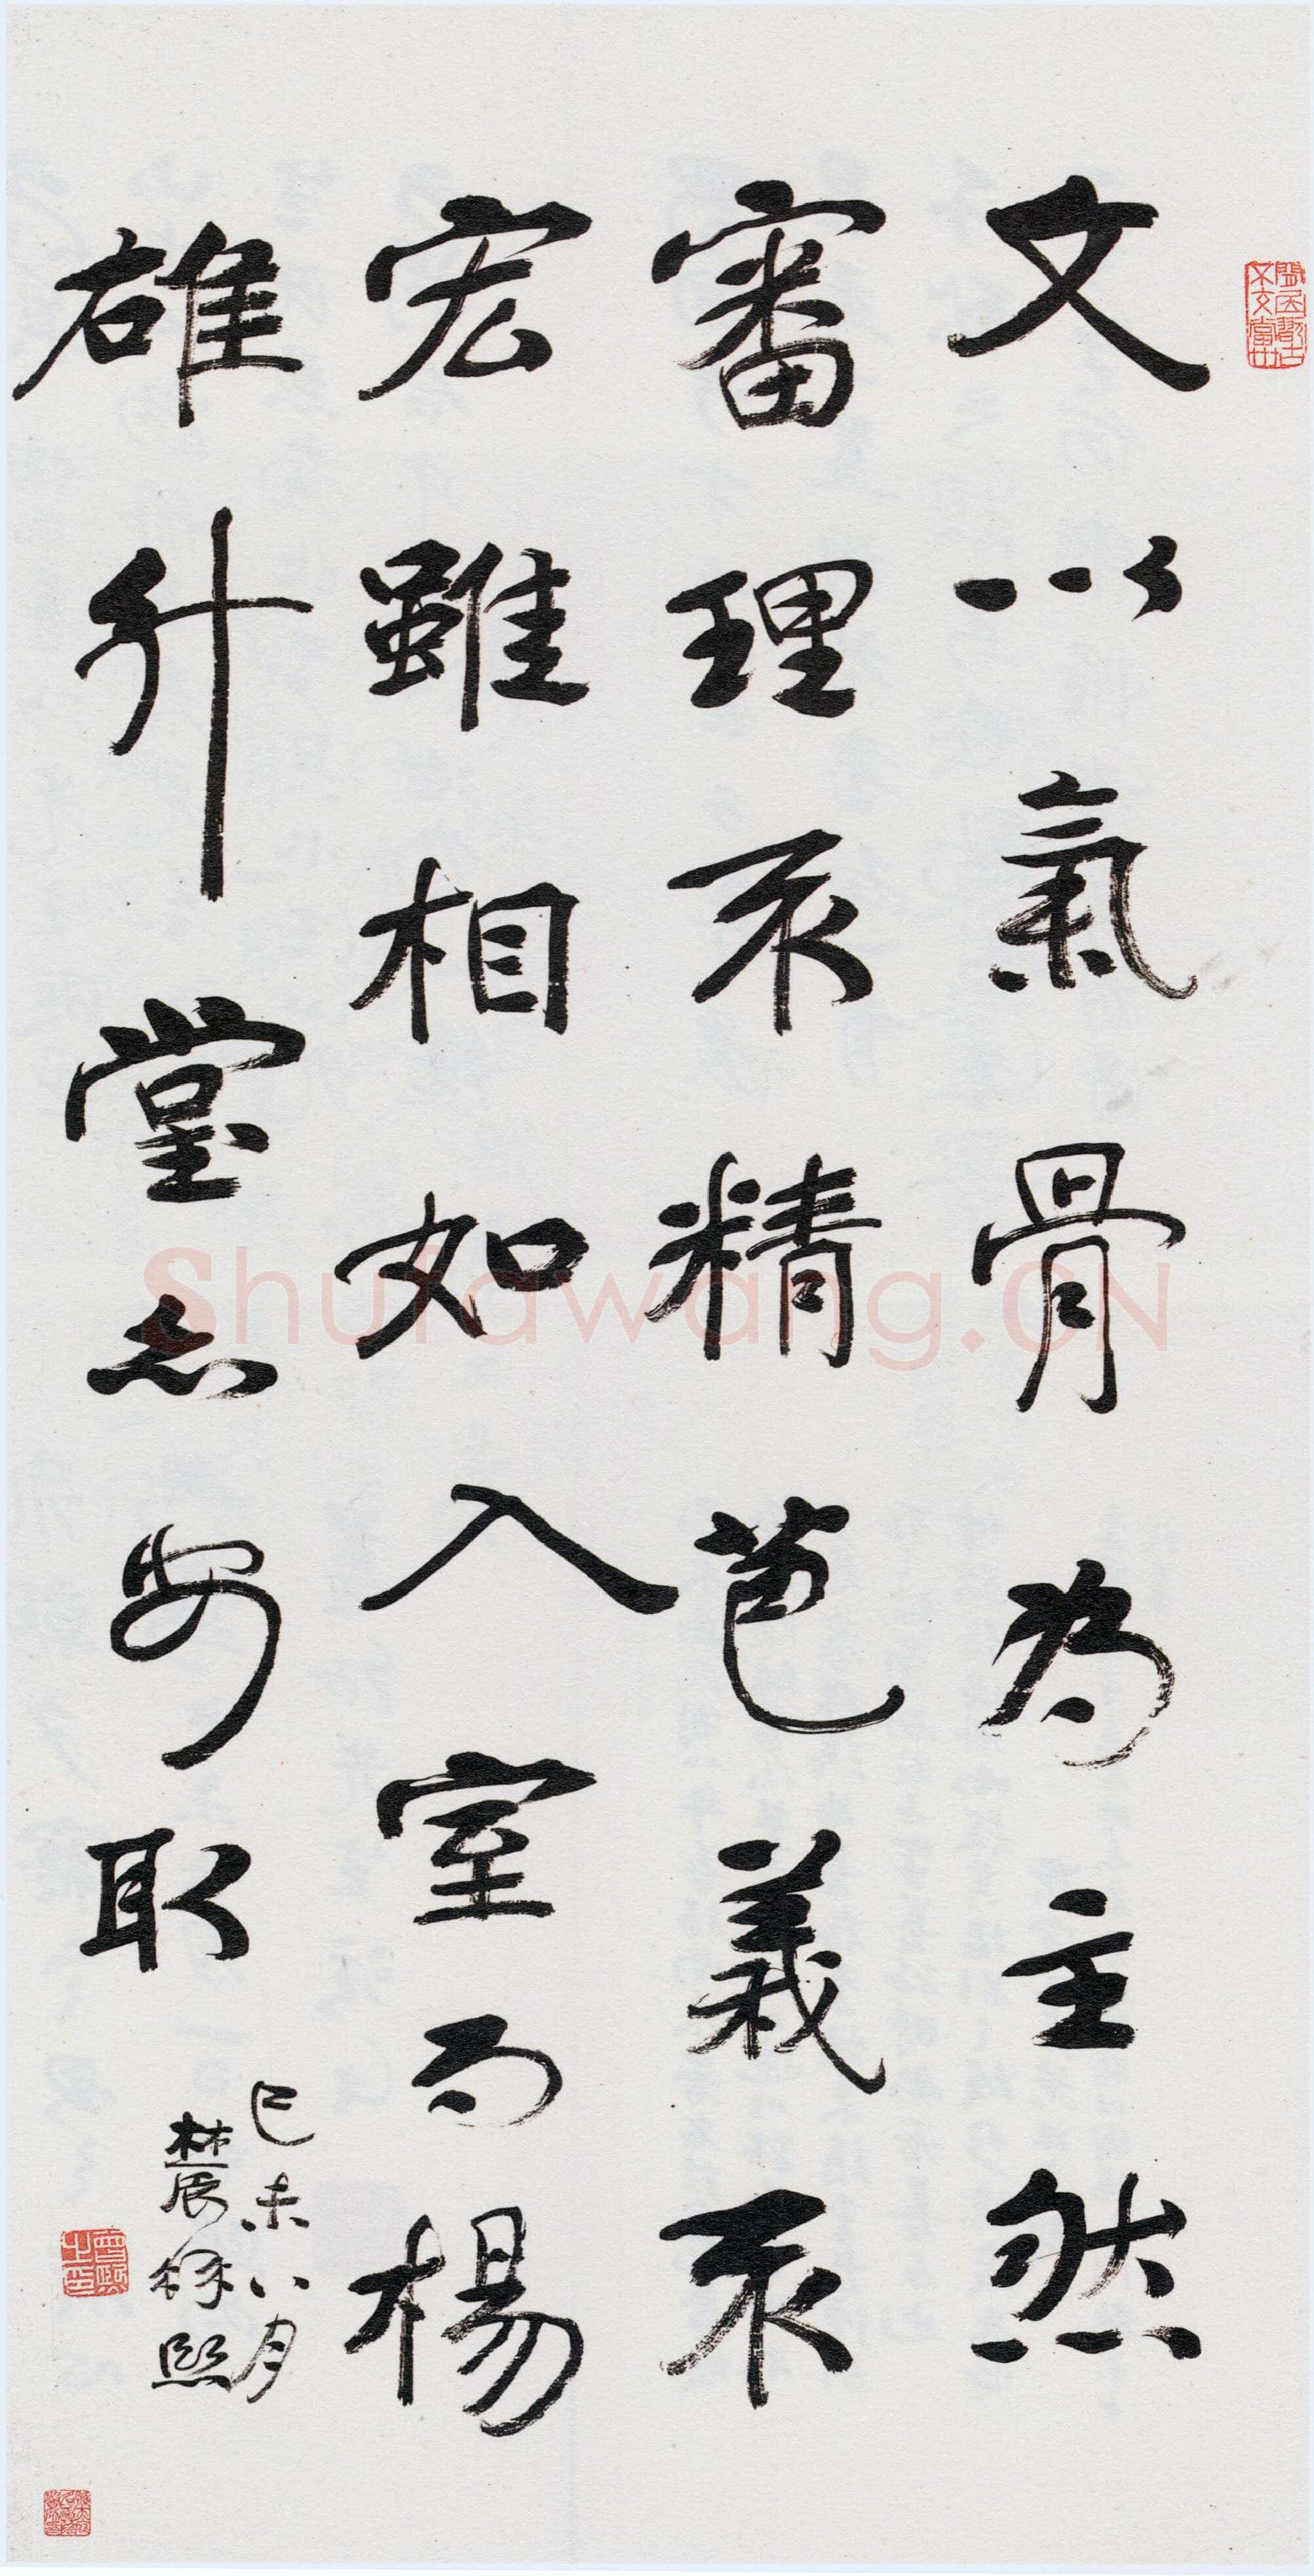 文以氣骨為主然
審理不精芭義不
宏雖相如入室而楊
雄升堂亦安取
己未八月
農髯熙
Shufawang.CN